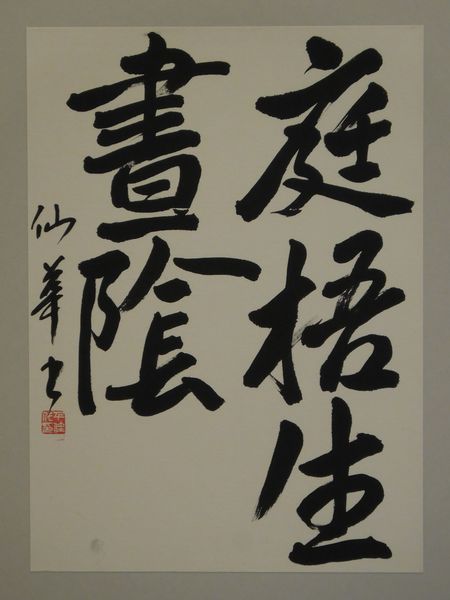 庭梧生
晝陰
仙華書